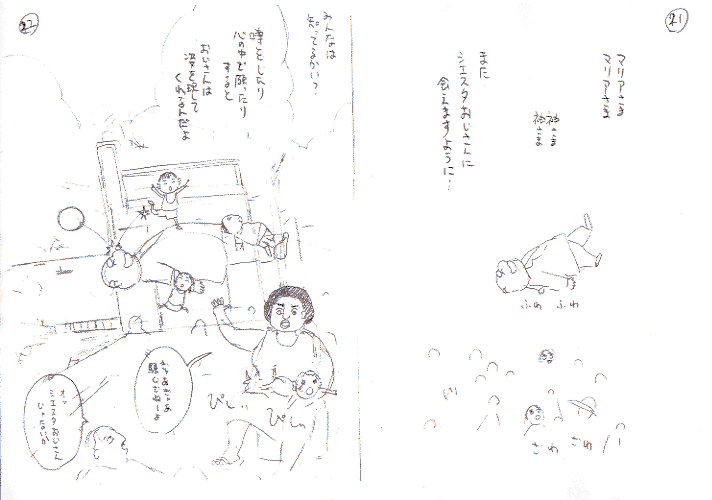 21
マリアさま
マリアさま
神さま
神さま
また
シエスタおじさんに
会えますように…
ふわ ふわ
ざわ ざわ
22
みんなは
知ってるかい?
噂をしたり
心の中で願ったり
すると
おじさんは
姿を現して
くれるんだよ
ぴぃぃ
ぴぃぃ
シエスタおじさん